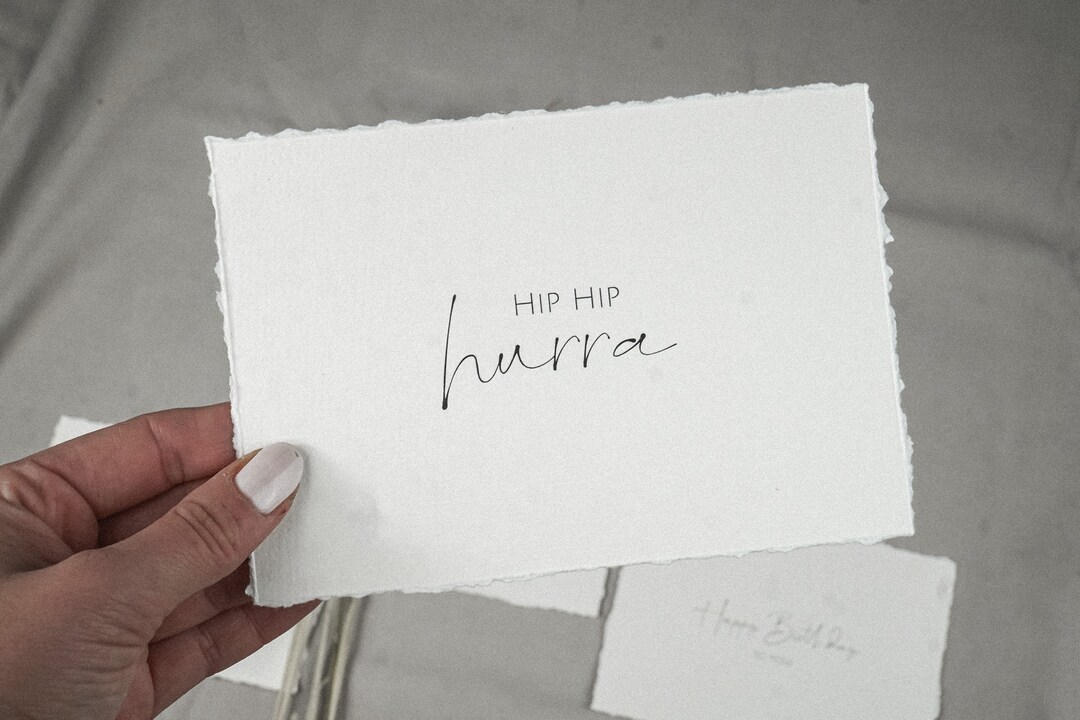 HIP HIP
hurra
Happy Birthday
TO YOU